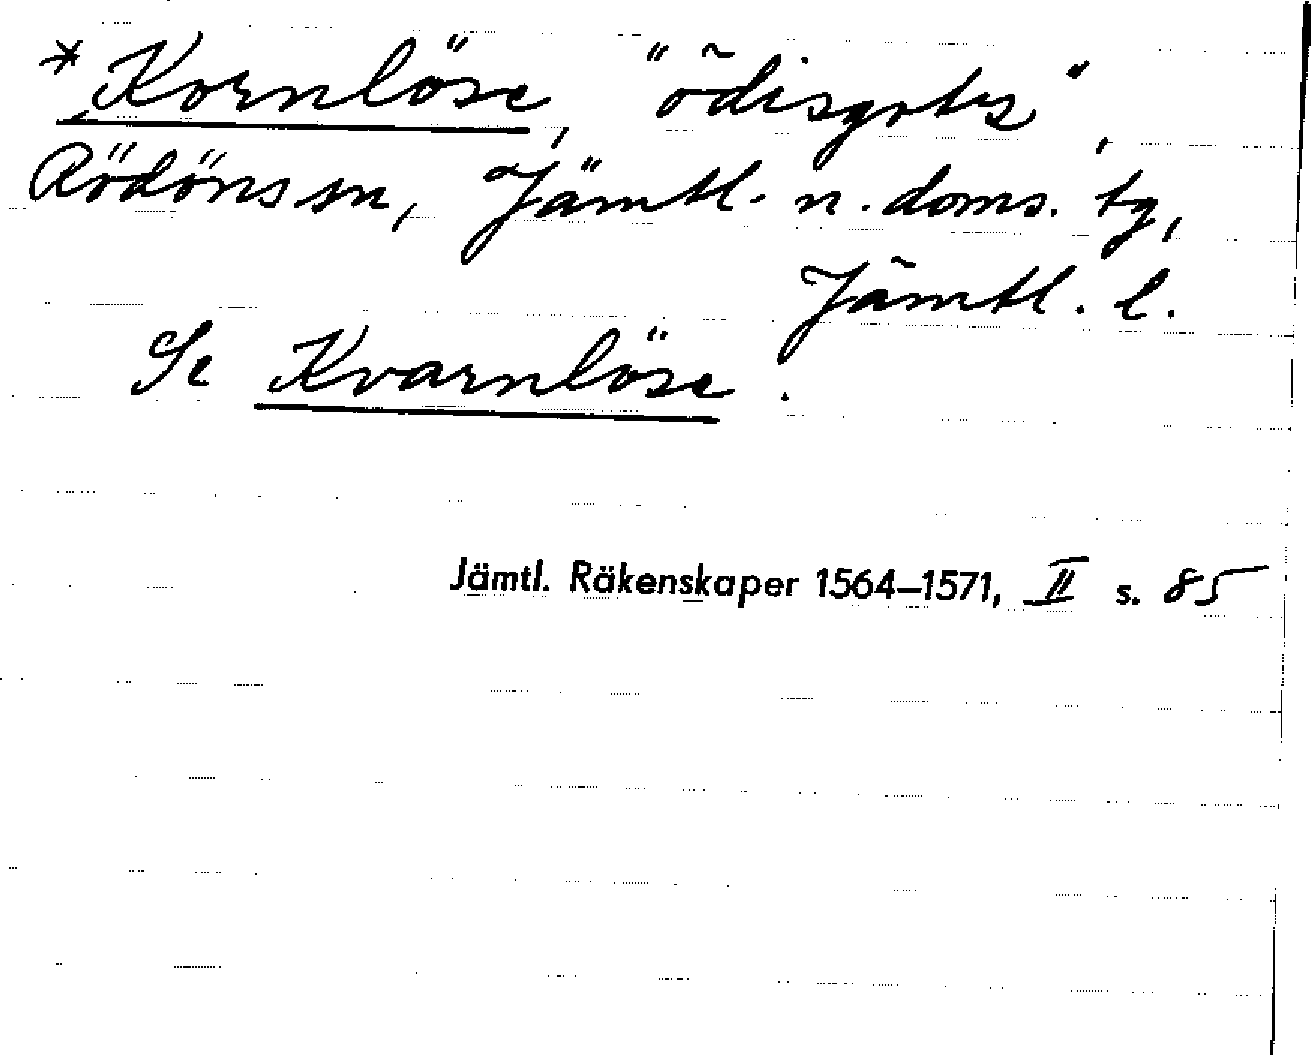 *Kornlöse, "ödisgots",
Rödöns sn, Jämtl. n. doms. tg,
Jämtl. l.
Se Kvarnlöse.
Jämtl. Räkenskaper 1564–1571, II s. 85